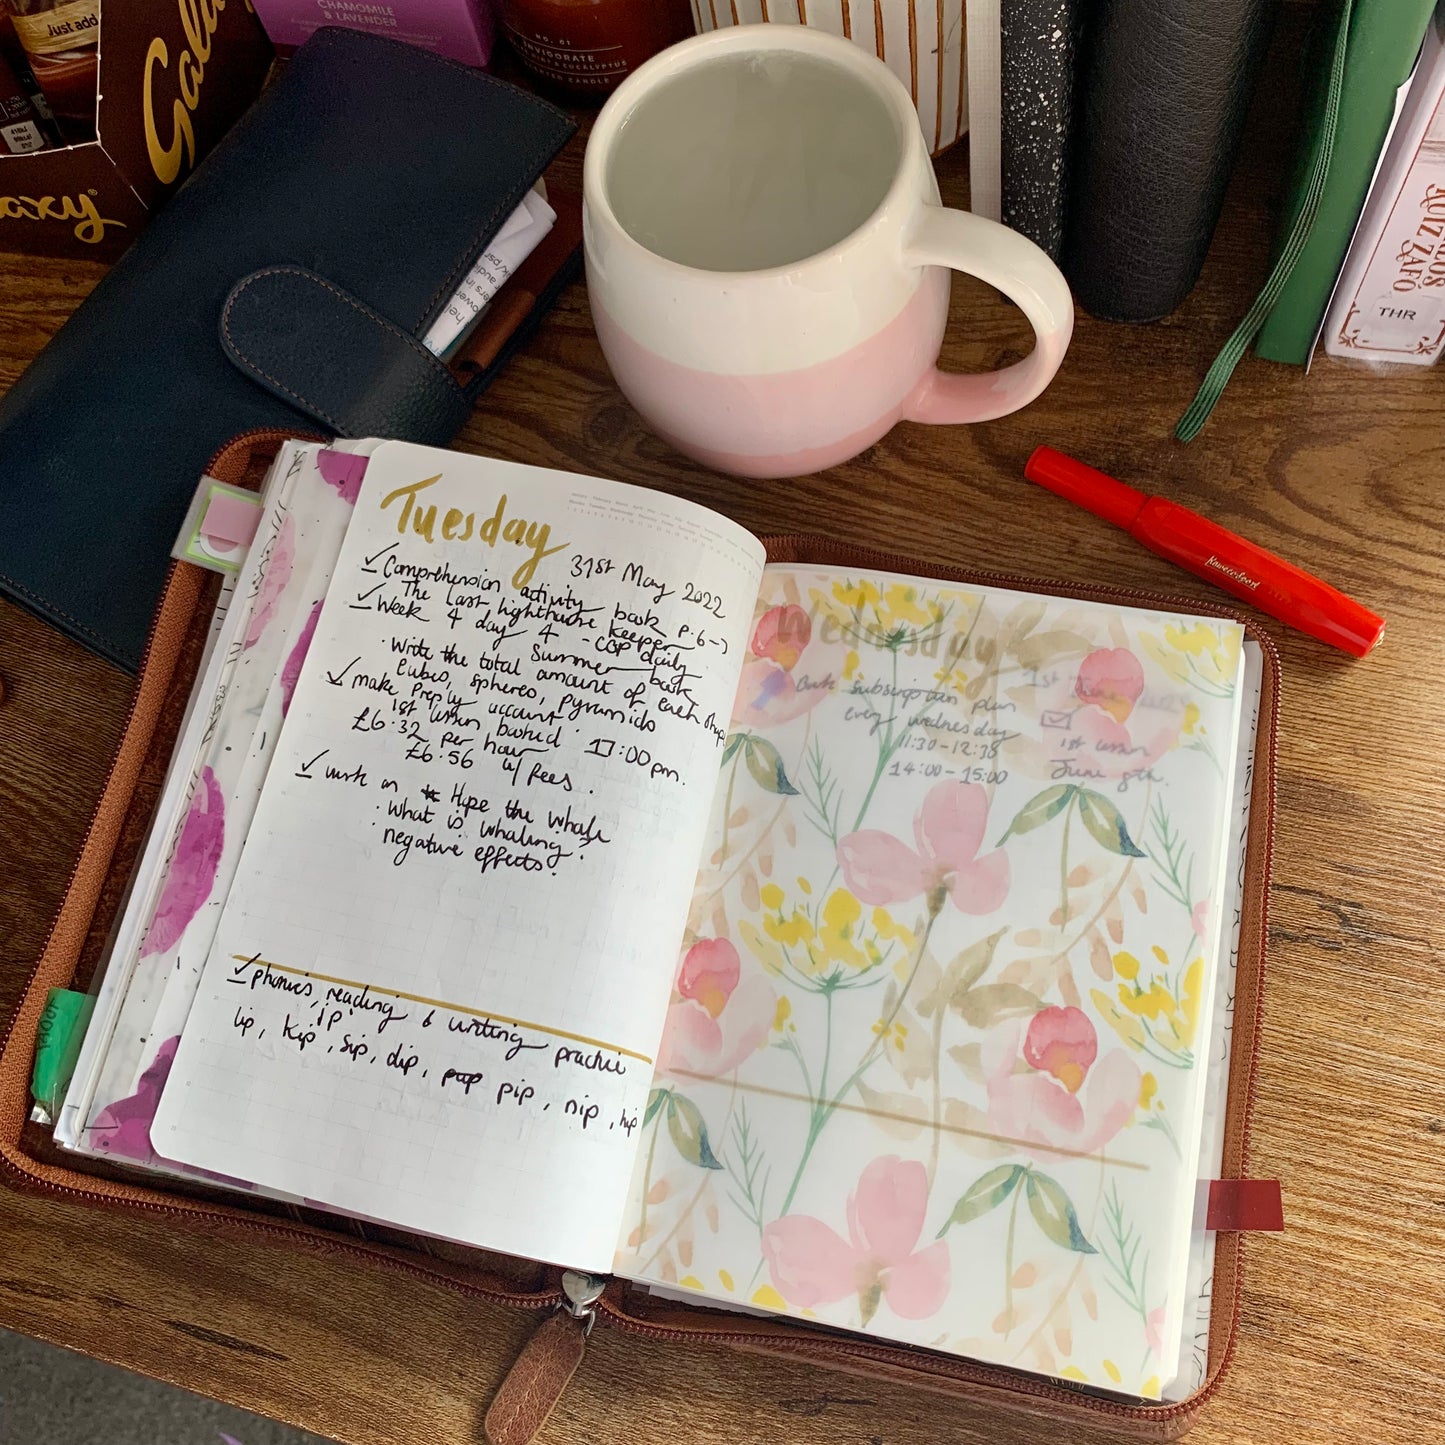 Just add
Galaxy
axy
CHAMOMILE
& LAVENDER
NO. 01
INVIGORATE
EUCALYPTUS
CANDLE
RUIZ ZAFÓ
THR
Kaweco Sport
Tuesday
31st May 2022
✓ Comprehension activity book p.6→
The last lighthouse keeper
✓ Week 4 day 4 - CGP daily
Summer book
· Write the total amount of each shape
cubes, spheres, pyramids
✓ make Preply account
1st lesson booked 17:00pm.
£6.32 per hour
£6.56 w/ fees.
✓ work on Hope the whale
· what is whaling?
· negative effects.
✓ phonics, reading & writing practice
'ip'
lip, kip, sip, dip, pip, nip, hip
Wednesday
1st June
Book subscription plan
every wednesday
11:30-12:30
14:00-15:00
1st lesson
June 8th.